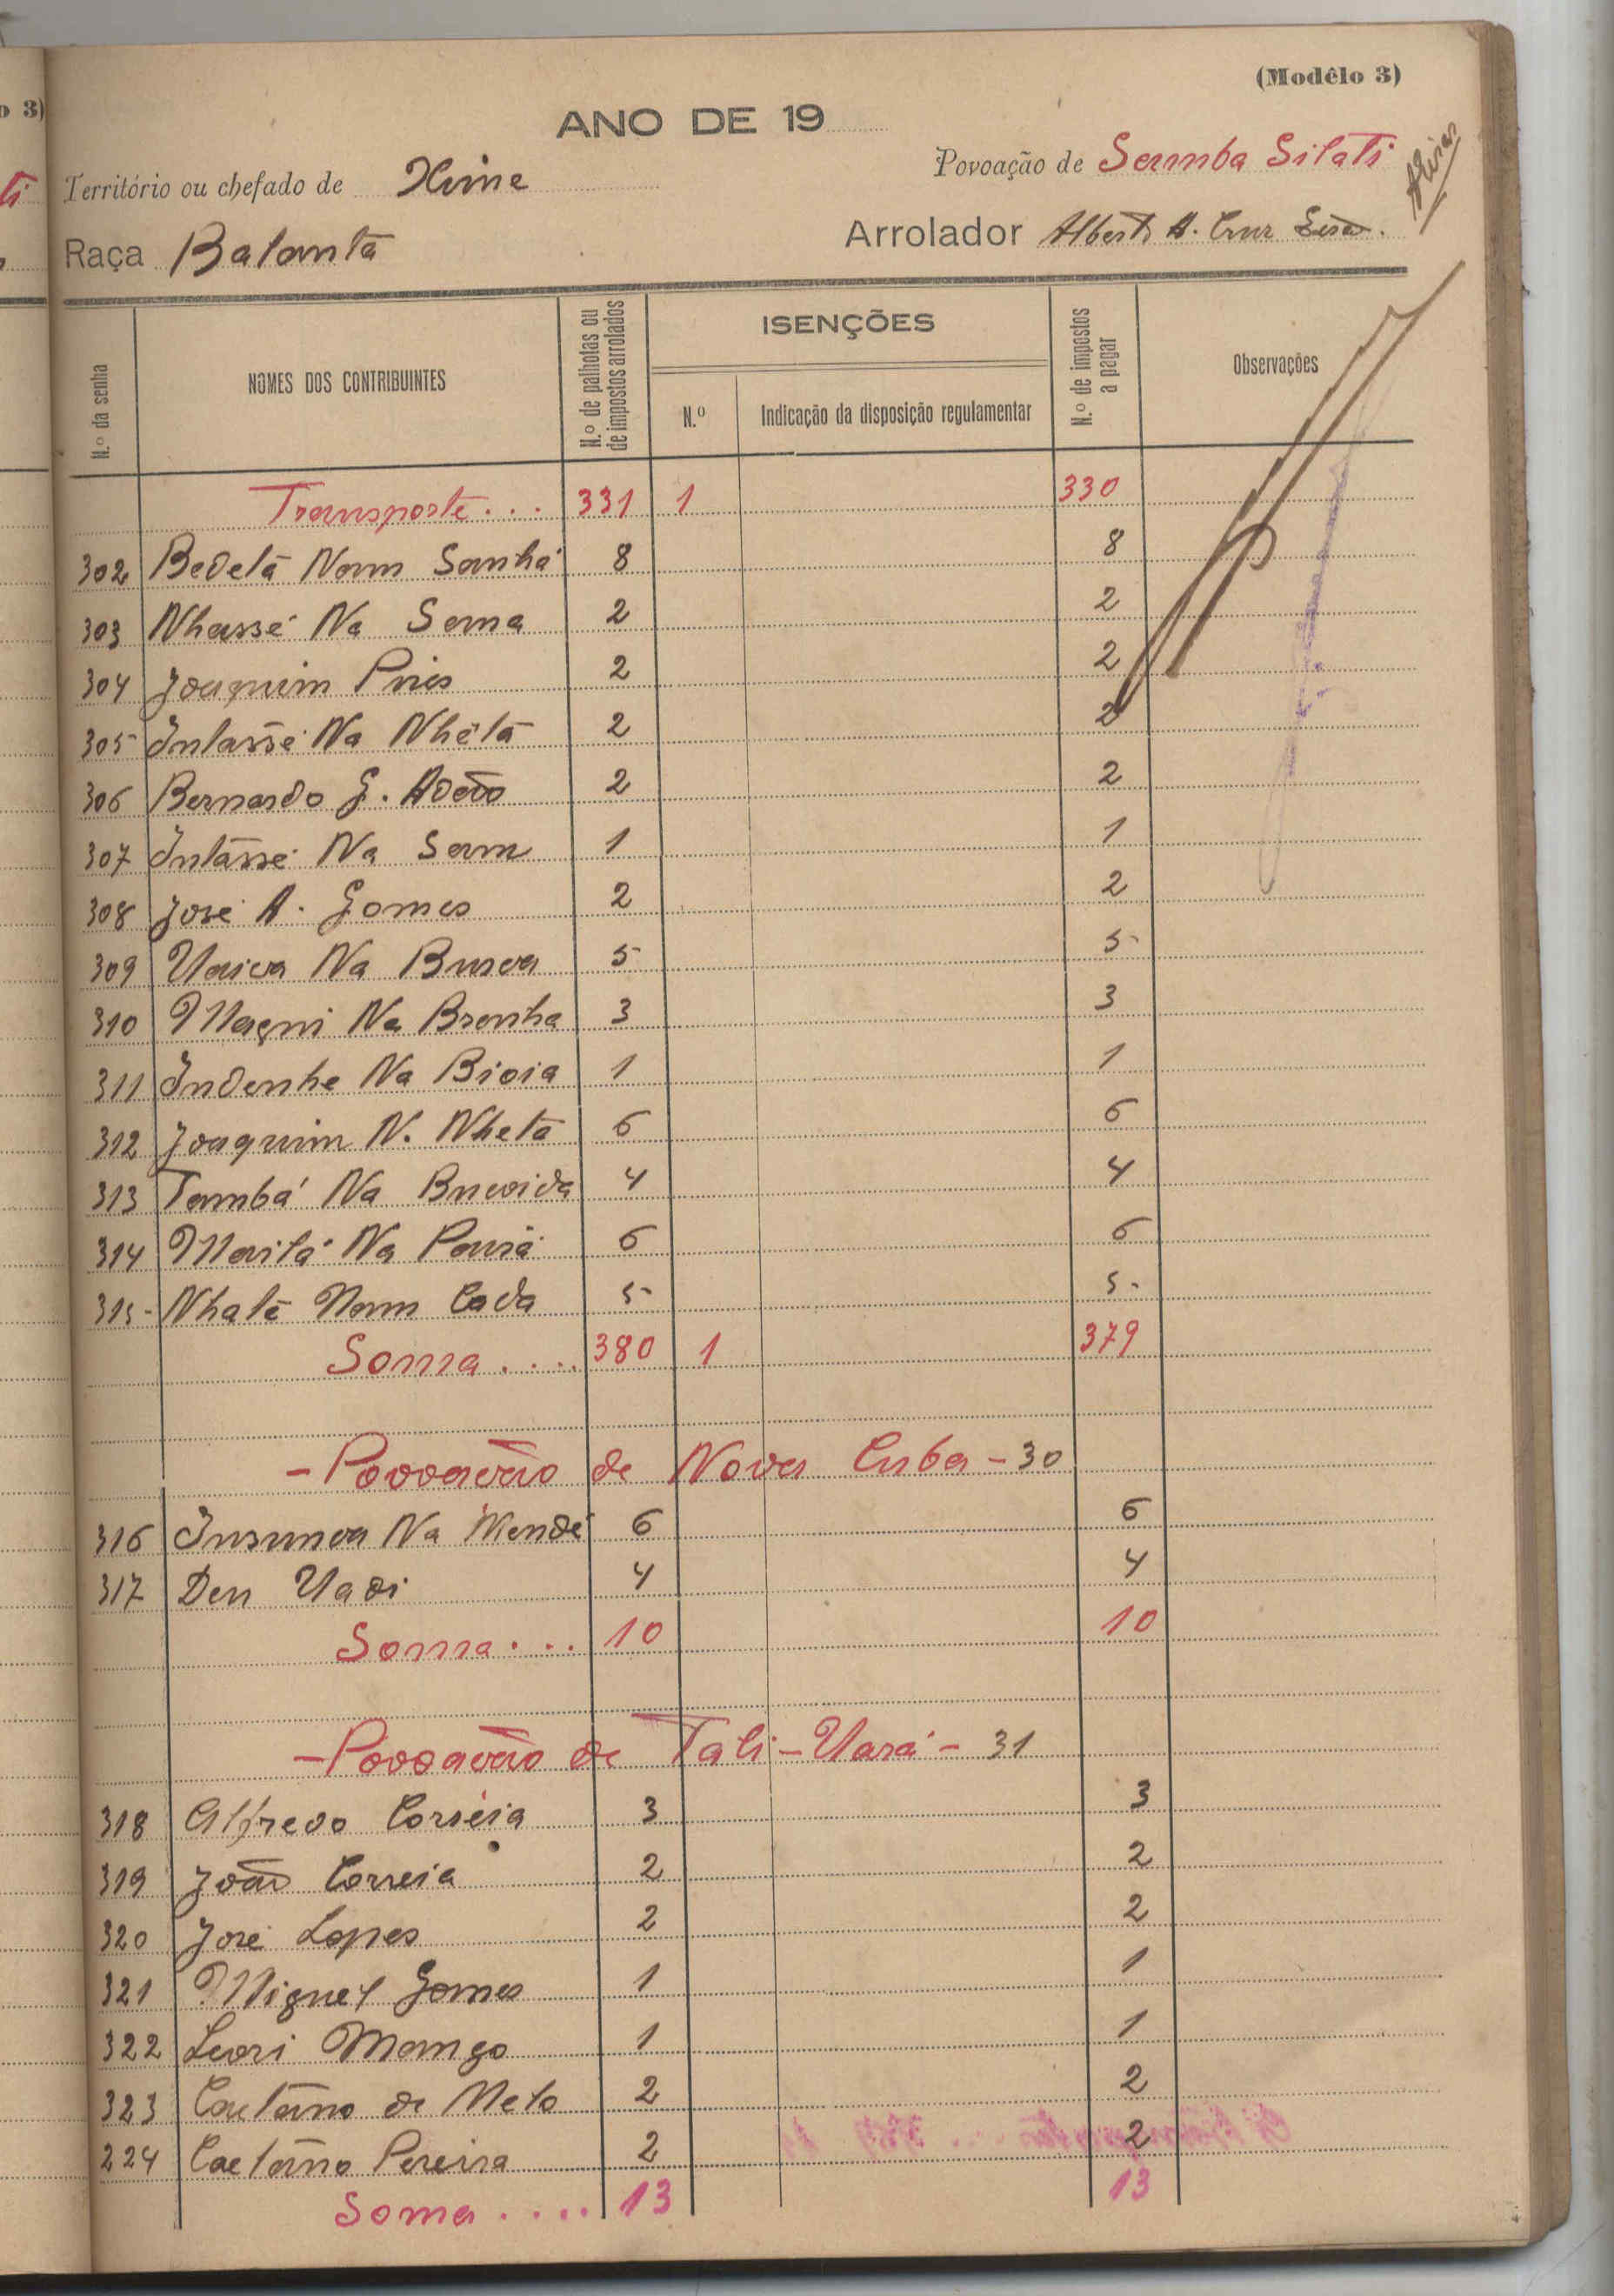 (Modêlo 3)
o 3)
ANO DE 19
ti
Território ou chefado de Xime
Povoação de Samba Silati
Raça Balanta
Arrolador Alberto A. Cruz
N.º da senha
NOMES DOS CONTRIBUINTES
N.º de palhotas ou de impostos arrolados
ISENÇÕES
N.º
Indicação da disposição regulamentar
N.º de impostos a pagar
Observações
Transporte... 331 1 330
302 Bedetá Nam Sanhá 8 8
303 Nhassé Na Sama 2 2
304 Joaquim Pires 2 2
305 Intassé Na Nhêtá 2 2
306 Bernardo G. Adão 2 2
307 Intassé Na Sam 1 1
308 José A. Gomes 2 2
309 Na 5 5
310 Na Branha 3 3
311 Indenhe Na Bioia 1 1
312 Joaquim N. Nhetá 6 6
313 Tambá Na 4 4
314 Na 6 6
315 Nhatê Nam Cada 5 5
Soma.... 380 1 379
- Povoação de Nova Cuba - 30
316 Na 6 6
317 Den Uadi 4 4
Soma.... 10 10
- Povoação de Tali-Uará - 31
318 Alfredo Correia 3 3
319 João Correia 2 2
320 José Lopes 2 2
321 Miguel Gomes 1 1
322 Mango 1 1
323 Caetano de Melo 2 2
224 Caetano Pereira 2 2
Soma.... 13 13